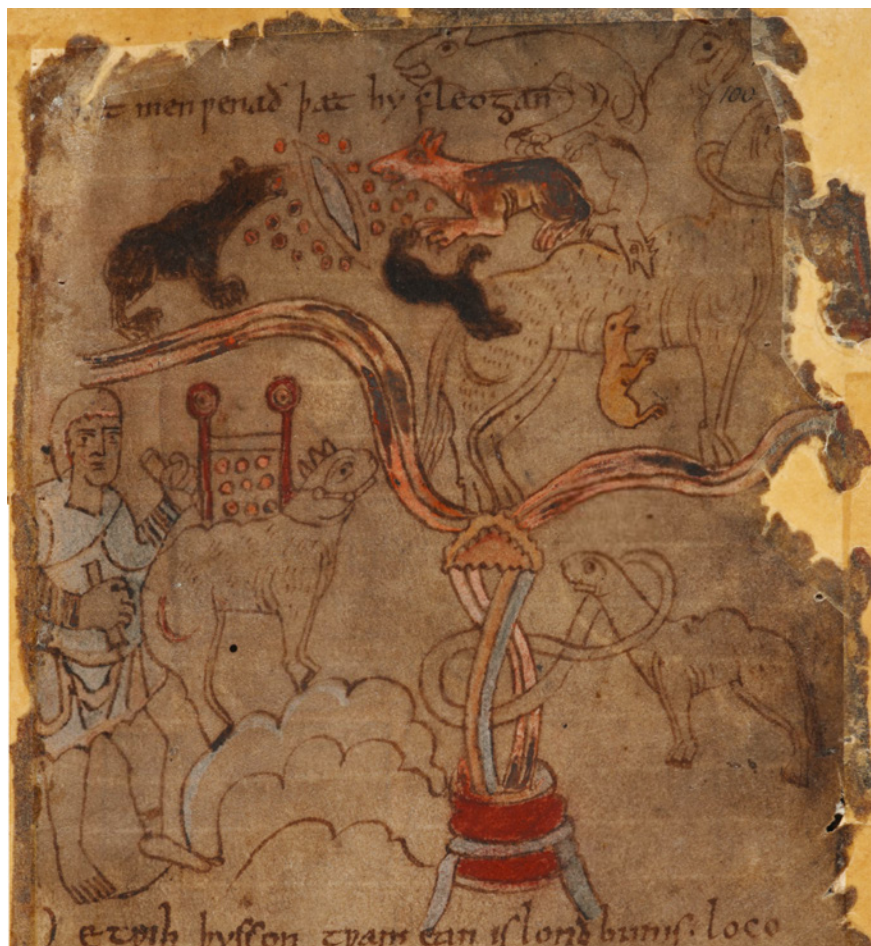 men ƿenað þæt hy fleogan
100
etƿih þysson tƿam ean is lond bunis· loco